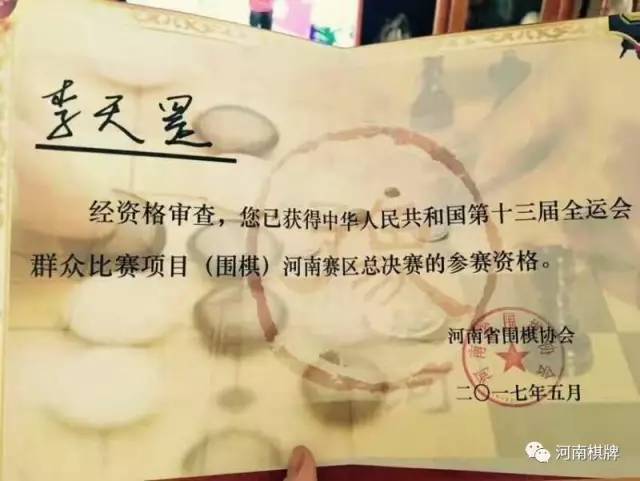 李天
经资格审查，您已获得中华人民共和国第十三届全运会
群众比赛项目（围棋）河南赛区总决赛的参赛资格。
河南省围棋协会
河南省围棋协会
二〇一七年五月
河南棋牌